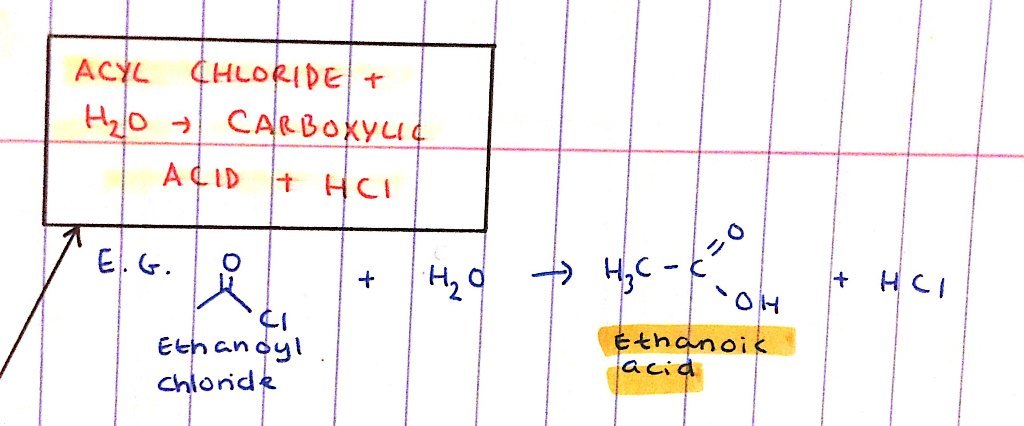 ACYL CHLORIDE +
H₂O → CARBOXYLIC
ACID + HCl
E.G. O Cl + H₂O → H₃C-C O OH + HCl
Ethanoyl
chloride
Ethanoic
acid